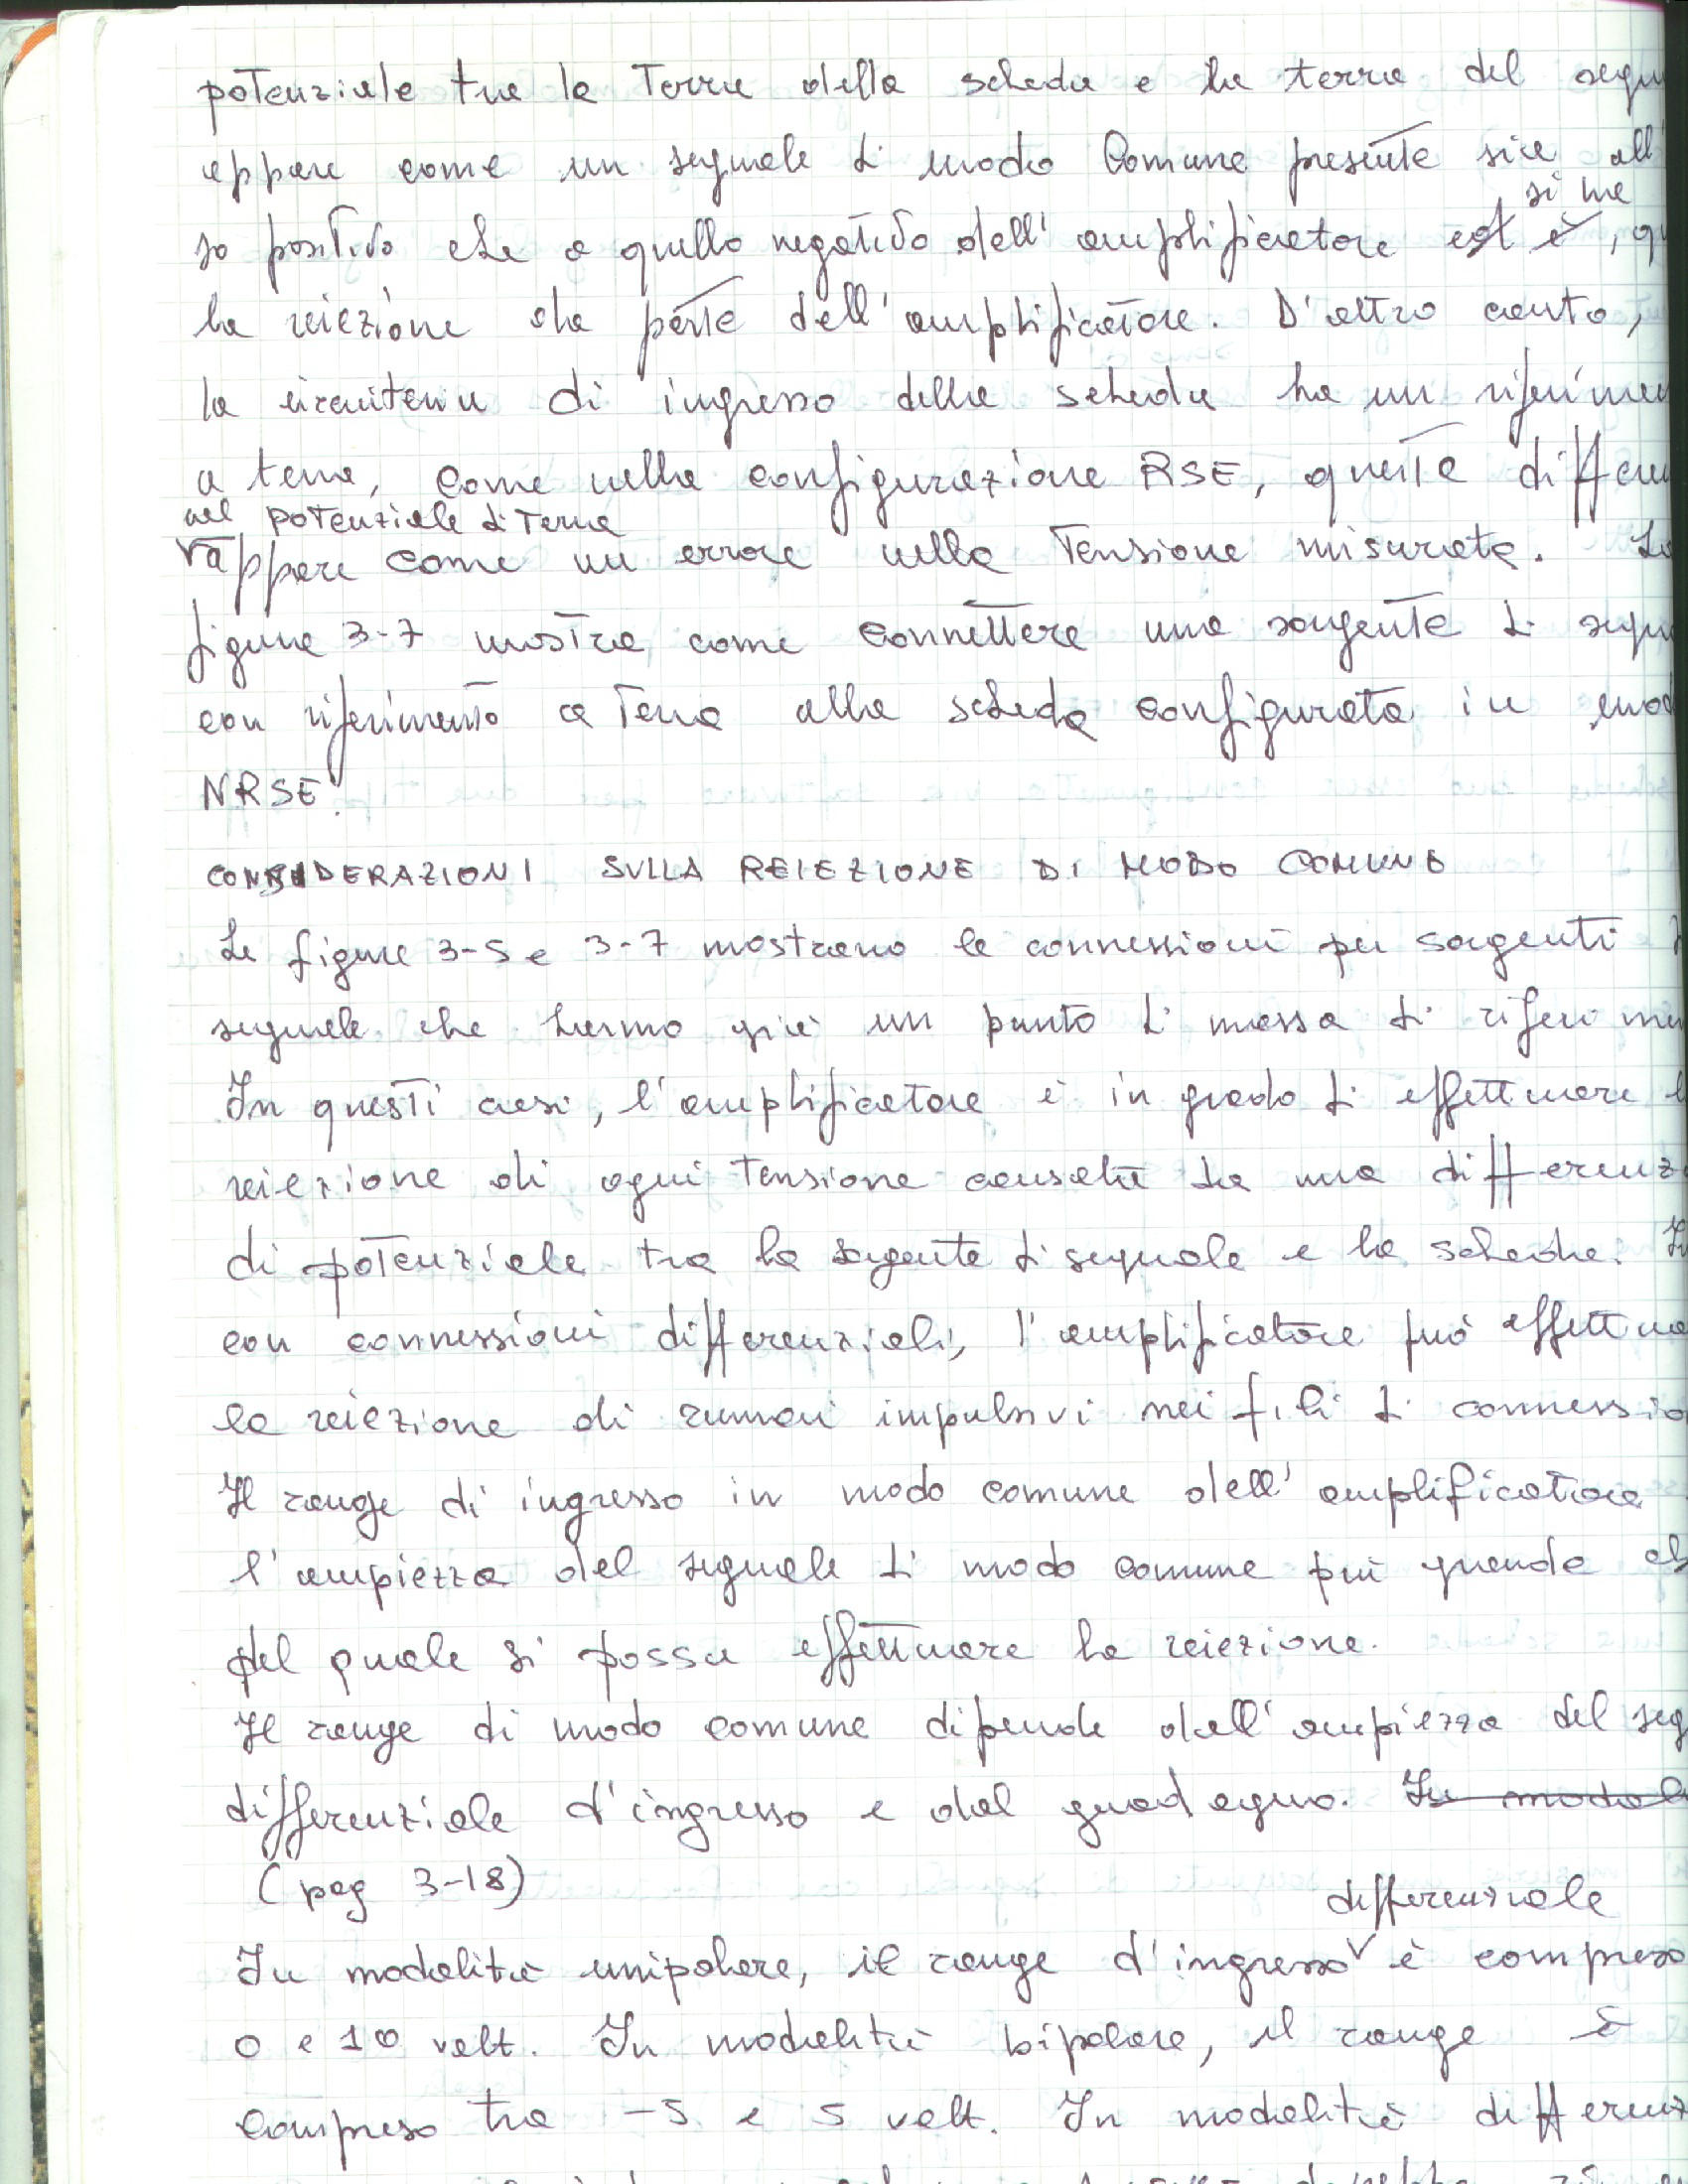 potenziale tra la terra della scheda e la terra del segn
appare come un segnale di modo comune presente sia all'
si ha
so positivo che a quello negativo dell' amplificatore , qu
la reiezione da parte dell'amplificatore. D'altro canto,
la circuiteria di ingresso della scheda ha un riferimen
a terra, come nella configurazione RSE, questa differen
nel potenziale di terra
appare come un errore nella tensione misurata. La
figura 3-7 mostra come connettere una sorgente di segna
con riferimento a terra alla scheda configurata in mod
NRSE.
CONSIDERAZIONI SULLA REIEZIONE DI MODO COMUNE
Le figure 3-5 e 3-7 mostrano le connessioni per sorgenti
segnale che hanno già un punto di massa di riferimen
In questi casi, l'amplificatore è in grado di effettuare l
reiezione di ogni tensione causata da una differenz
di potenziale tra la sorgente di segnale e la scheda. In
con connessioni differenziali, l'amplificatore può effettua
la reiezione di rumori impulsivi nei fili di connessio
Il range di ingresso in modo comune dell' amplificatore
l'ampiezza del segnale di modo comune più grande al
del quale si possa effettuare la reiezione.
Il range di modo comune dipende dall'ampiezza del seg
differenziale d'ingresso e dal guadagno. In modal
(pag 3-18)
differenziale
In modalità unipolare, il range d'ingresso è compreso
0 e 10 volt. In modalità bipolare, il range è
compreso tra -5 e 5 volt. In modalità differenz